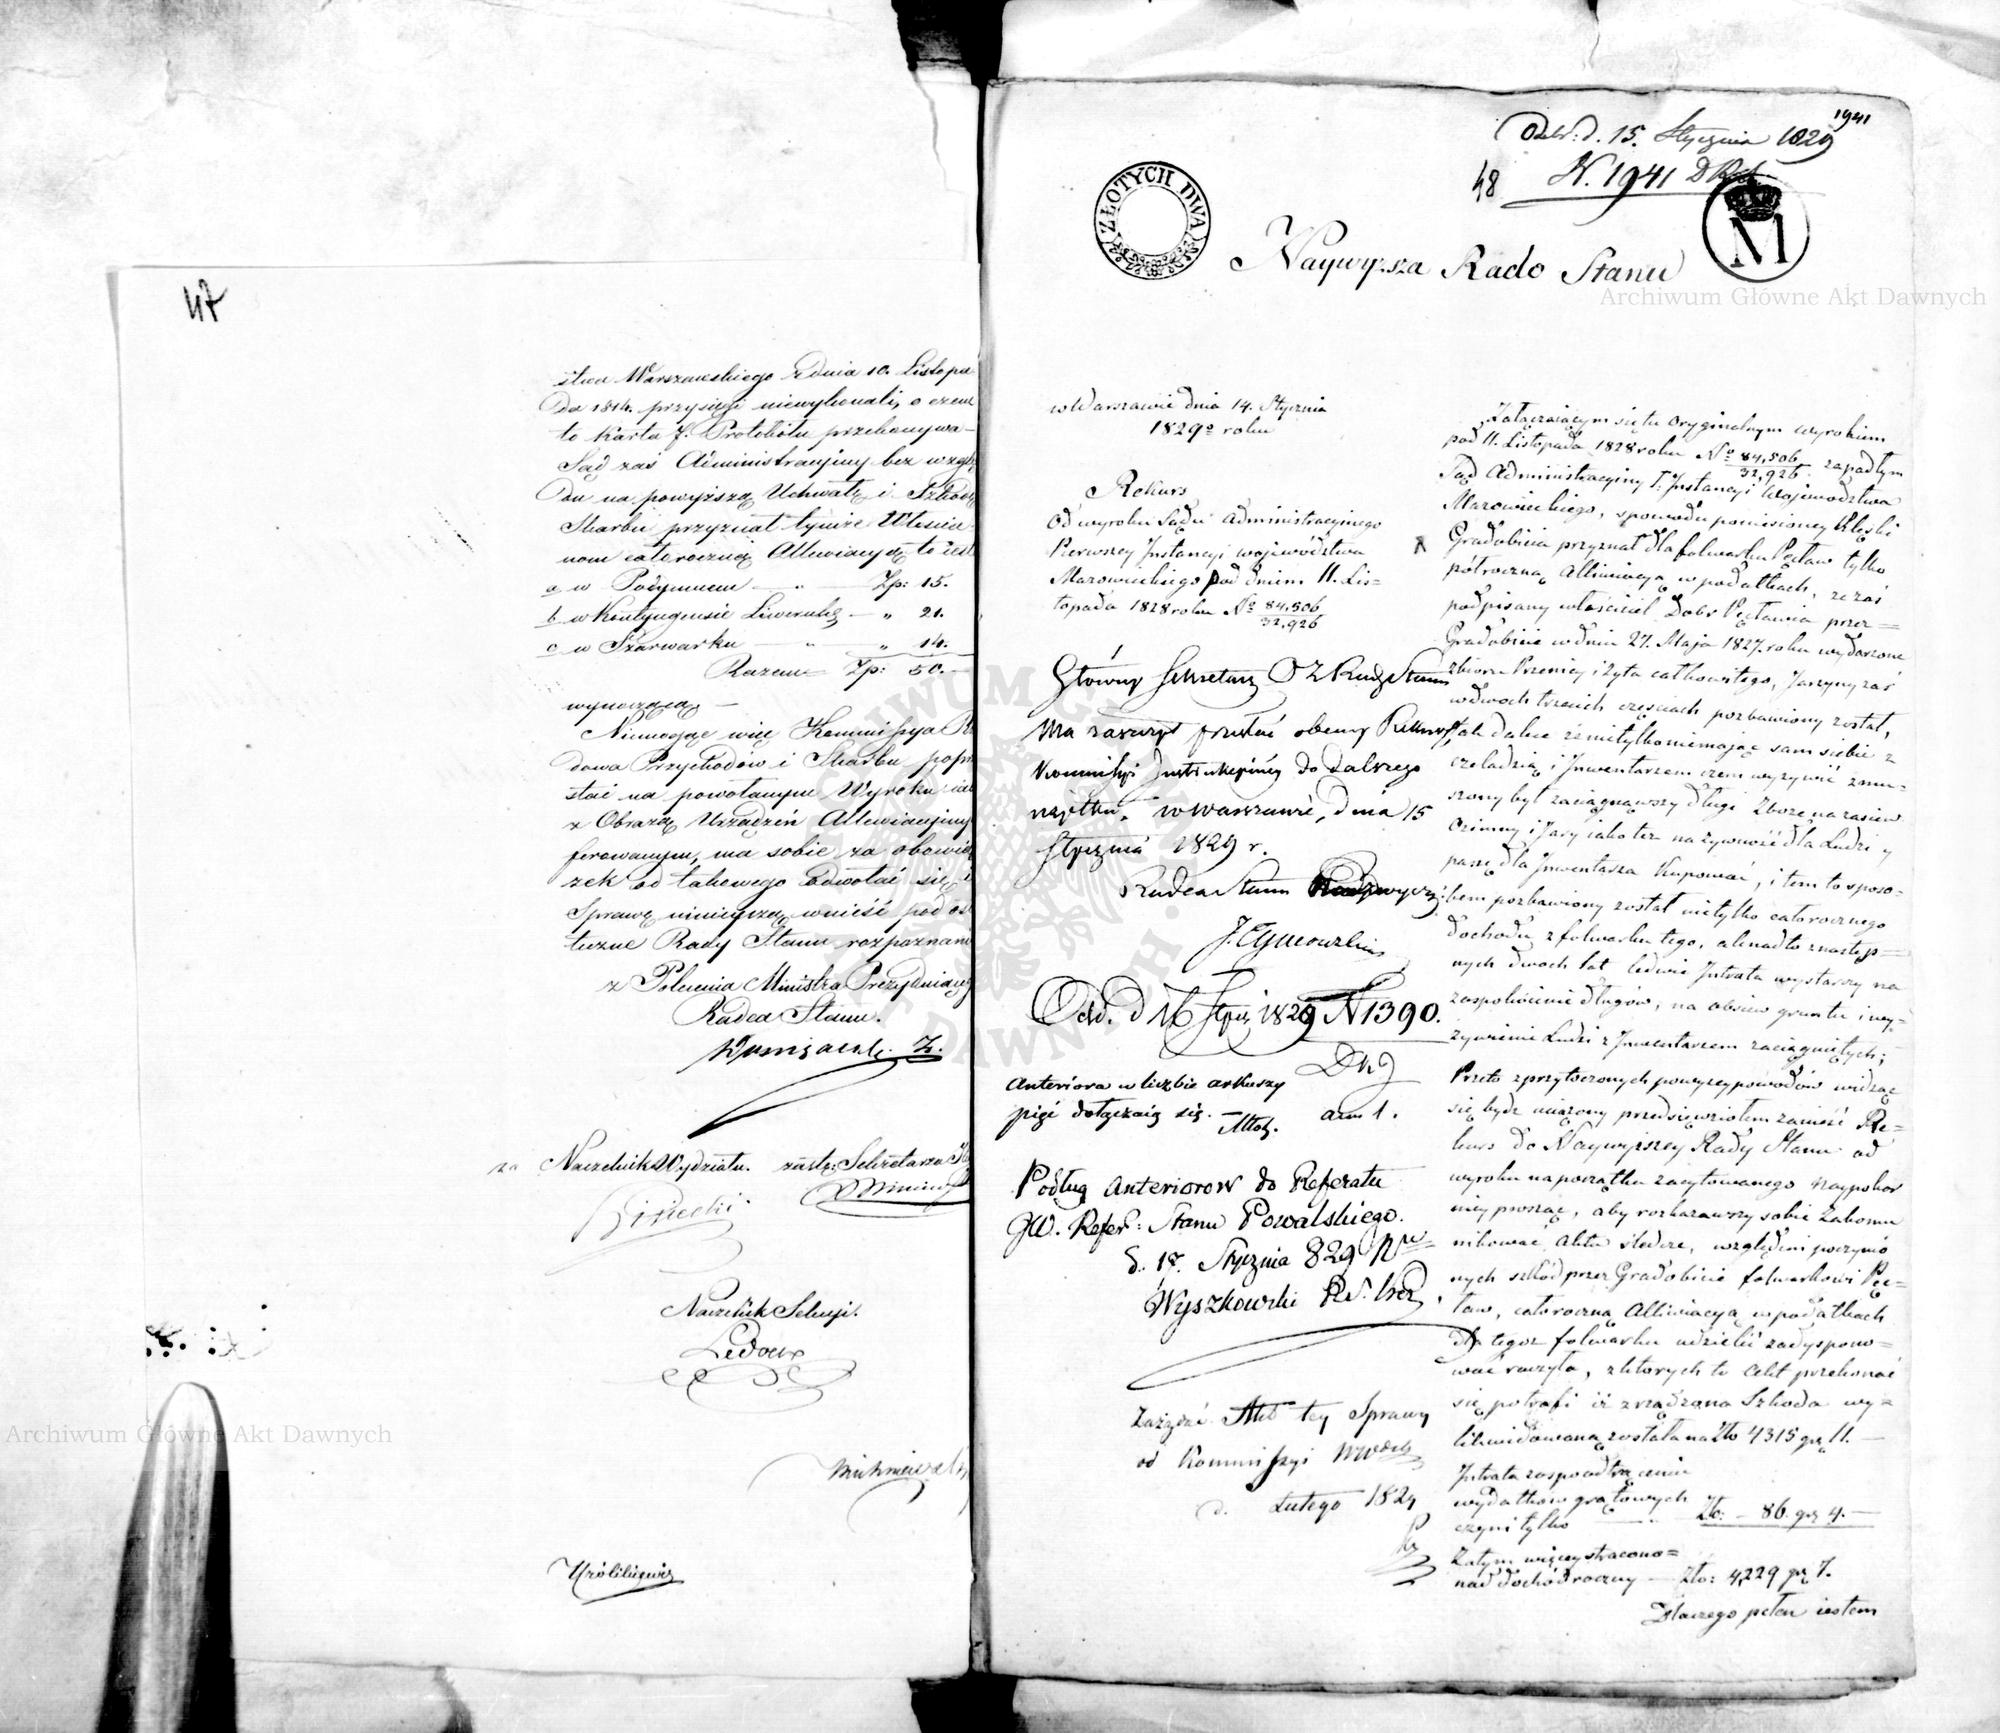 47
stwa Warszawskiego z dnia 10. Listopa
da 1814. przysięgi niewykonali, o czem
to Karta 7. Protokółu przekonywa –
Sąd zaś Administracyiny bez wzglę
du na powyższą Uchwałę i Szkodę
Skarbu przyznał tymże
całoroczną Allewiacyą to iest
a w Podymnem — " — Zp: 15.
b w Kontyngensie Liwerunk: — " 21.
c w Szarwarku — " — " 14.
Razem Zp: 50. –
wynoszącą –
Niemogąc więc Kommissya Rzą
dowa Przychodów i Skarbu poprze
stać na powołanym Wyroku iako
z Obrazą Urządzeń Allewiacyiny
ferowanym, ma sobie za obowią
zek od takowego odwołać się i
Sprawę ninieyszą wnieść pod osta
teczne Rady Stanu rozpoznani
z Polecenia Ministra Prezyduiącego
Radca Stanu.
za Naczelnik Wydziału. zastę: Sekretarza
Naczelnik Sekcyi.
Ledoux
Królikiewicz
1941
Odebr: d. 15. Stycznia 1829
48 N. 1941 D
ZŁOTYCH DWA
M
Naywyższa Rado Stanu
w Warszawie dnia 14. Stycznia
1829º roku
Rekurs
Od wyroku Sądu Administracyinego
Pierwszey Instancyi Województwa
Mazowieckiego pod dniem 11. Lis=
topada 1828 roku Nº 84,506
32,926
Główny Sekretarz Rady Stanu
Ma zaszczyt przesłać obecny Rekurs
Kommissyi Instrukcyiney do dalszego
użytku, w Warszawie, dnia 15
Stycznia 1829 r.
Radca Stanu
Odd. d 16 Stycz 1829 N 1390.
Anteriora w liczbie arkuszy
pięć dołączaią się.
ark 1.
Podług Anteriorow do Referatu
JW. Refer: Stanu Powalskiego.
d. 17. Stycznia 829
Wyszkowski
Zażądać Akt tey Sprawy
od Kommissyi
d. Lutego 1829
Załączaiącym się tu oryginalnym wyrokiem
pod 11. Listopada 1828 roku Nº 84,506 zapadłym
32,926
Sąd Administracyiny I. Instancyi Województwa
Mazowieckiego, spowodu poniesioney klęski
Gradobicia przyznał dla folwarku Pęcław tylko
półroczną Alliwiacyą w podatkach, że zaś
podpisany właściciel Dobr Pęcławia przez=
Gradobicie w dniu 27. Maja 1827. roku wydarzone
zbioru Pszenicy i żyta całkowitego, Jarzyny zaś
w dwoch trzecich częściach pozbawiony został,
tak dalece że nietylko niemaiąc sam siebie z
czeladzią i Inwentarzem czem wyżywić zmu=
szony był zaciągnąwszy długi Zboże na zasiew
ozimny i Jary iako też na żywność dla Ludzi y
paszę dla Inwentarza kupować, i tem to sposo=
bem pozbawiony został nietylko całorocznego
dochodu z folwarku tego, ale nadto z następ=
nych dwoch lat ledwie Intrata wystarczy na
zaspokoienie długów, na obsiew gruntu i wy=
żywienie Ludzi z Inwentarzem zaciągniętych;
Przeto z przytoczonych powyżey powodów widząc
się bydz uciążony przedsięwziołem zanieść Re=
kurs do Naywyższey Rady Stanu od
wyroku na początku zacytowanego naypokor
niey prosząc, aby rozkazawszy sobie zakomu
nikować Akta śledcze, względem poczynio
nych szkód przez Gradobicie folwarkowi Pęc=
ław, całoroczną Alliwiacyą w podatkach
dla tegoż folwarku udzielić zadyspono=
wać raczyła, z których to Akt przekonać
się potrafi iż zrządzona Szkoda wy=
likwidowaną została na Złło 4315 gr 11. –
Intrata zaspo odtrącenia
wydatkow grątowych
czyni tylko — Zło: – 86. gr 4. –
Zatym więcey stracono=
nad dochód roczny — Zło: 4,229 gr 7.
Dlaczego pełen iestem
Archiwum Główne Akt Dawnych
Archiwum Główne Akt Dawnych